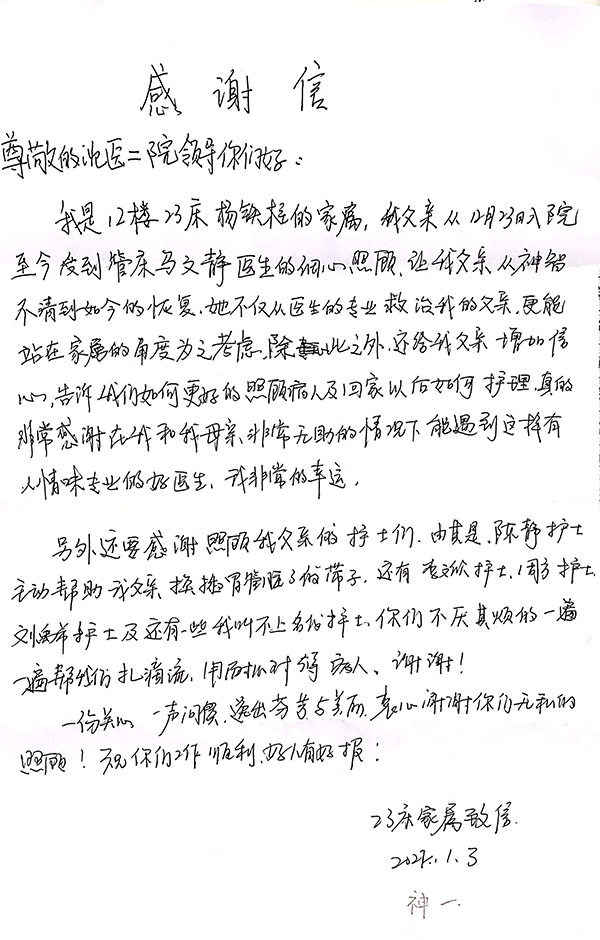 感谢信
尊敬的沈医二院领导你们好：
我是12楼23床杨铁栓的家属，我父亲从12月23日入院
至今受到管床马文静医生的细心照顾，让我父亲从神智
不清到如今的恢复，她不仅从医生的专业救治我的父亲，更能
站在家属的角度为之考虑，除此之外，还给我父亲增加信
心，告诉我们如何更好的照顾病人及回家以后如何护理，真的
非常感谢在我和我母亲非常无助的情况下能遇到这样有
人情味专业的好医生，我非常的幸运。
另外还要感谢照顾我父亲的护士们，由其是，陈静护士
主动帮助我父亲换插胃管脏了的带子，还有李文欣护士，周方护士
护士及还有一些我叫不上名的护士，你们不厌其烦的一遍
一遍帮我们扎滴流，用历心对待病人，谢谢！
一份关心一声问候，透出芬芳与美丽，衷心谢谢你们无私的
照顾！祝你们工作顺利，好人有好报！
23床家属致信
1.3
神一